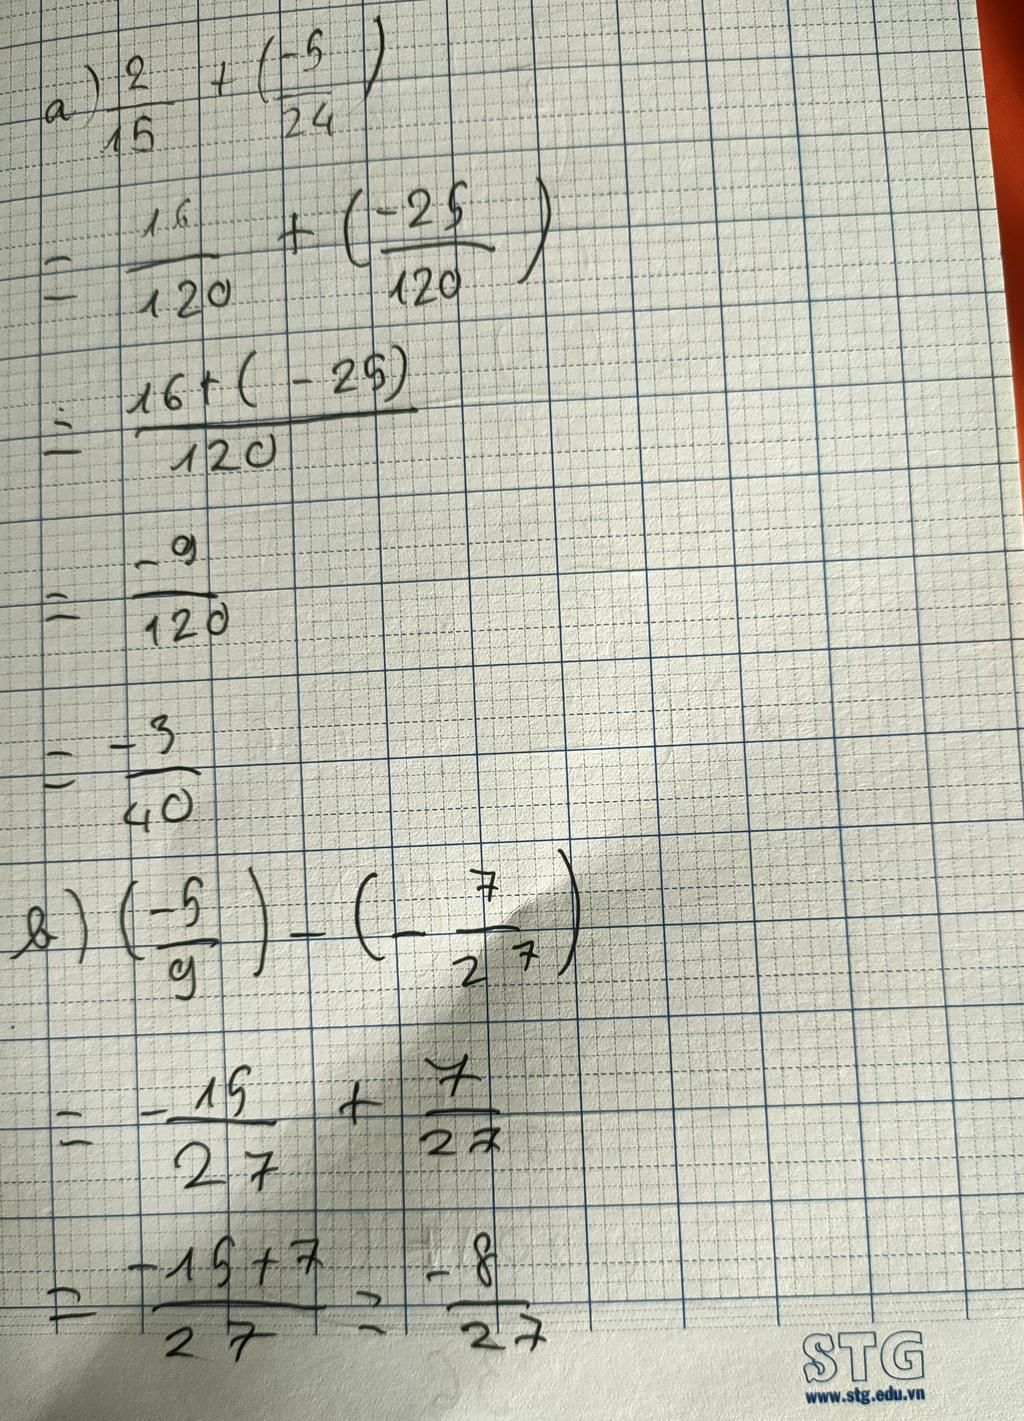 a) 2/15 + (-5/24)
= 16/120 + (-25/120)
= 16+(-25)/120
= -9/120
= -3/40
b) (-5/9) - (-7/27)
= -15/27 + 7/27
= -15+7/27 = -8/27
STG
www.stg.edu.vn